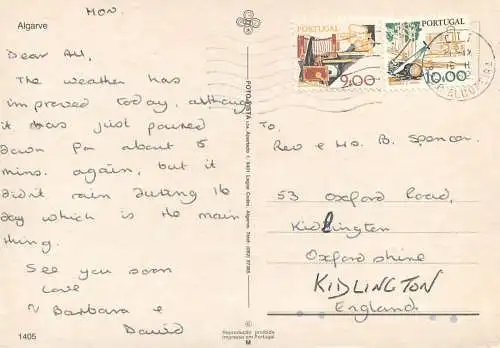 Algarve
MON.
Dear All,
The weather has
improved today, although
it has just poured
down for about 5
mins. again, but it
didn't rain during the
day which is the main
thing.
See you soon
Love
Barbara &
David
1405
PORTUGAL
9.00
PORTUGAL
10.00
To,
Rev & Mrs B. Spencer.
53 Oxford Road,
Kidlington
Oxfordshire
KIDLINGTON
England
FOTO-VISTA
Reprodução proibida
Impresso em Portugal